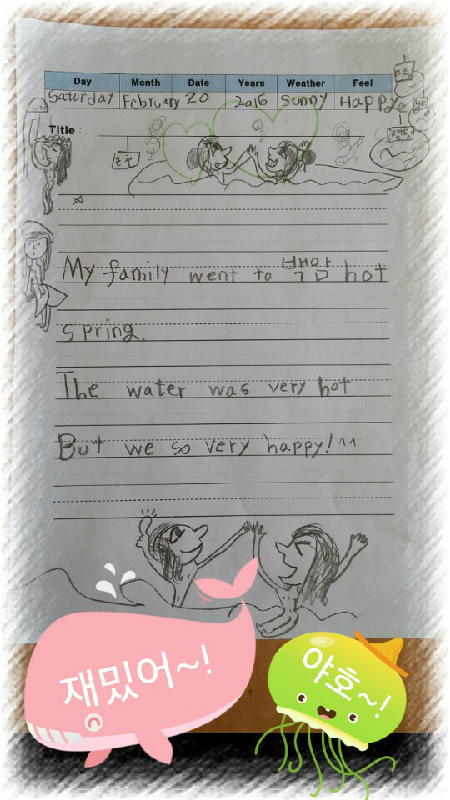 Day Month Date Years Weather Feel
Saturday February 20 2016 Sunny Happy
Title :
My family went to 부곡 hot
spring.
The water was very hot
But we so very happy!^^
재밌어~!
야호~!